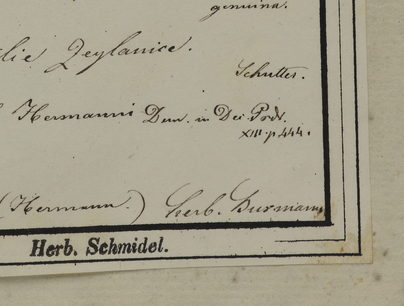 genuina.
Zeylanice.
Schultes.
Hermanni Dun. in Dei Prdr.
XIII. p. 444.
(Hermann.) herb. Burmann
Herb. Schmidel.